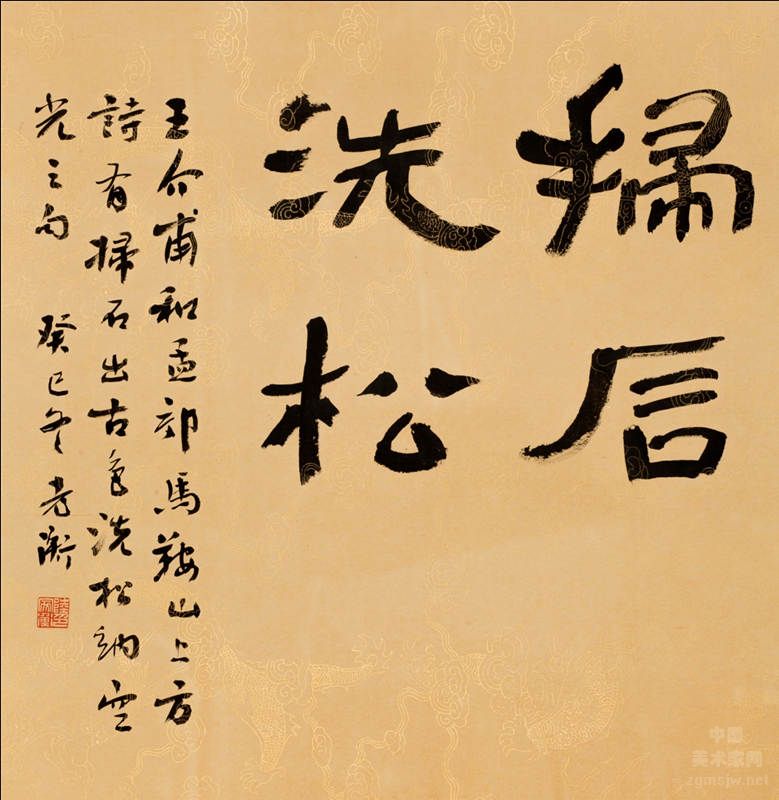 掃石
洗松
王介甫和孟郊馬鞍山上方
詩有掃石出古色洗松納空
光之句 癸巳冬老衡
中国
美术家网
zgmsjw.net